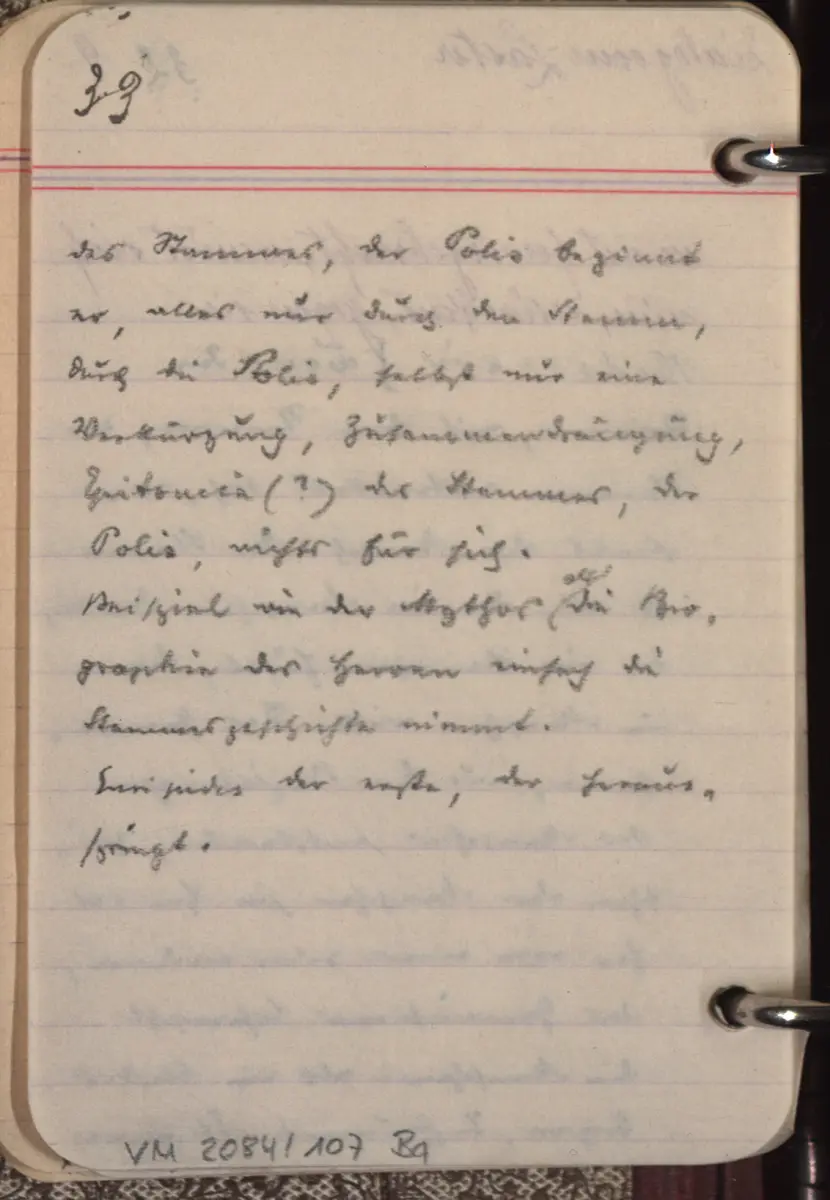 33
des Stammes, der Polis beginnt
er, alles nur durch den Stamm,
durch die Polis, selbst nur eine
Verkürzung, Zusammendrängung,
Epitomeia (?) des Stammes, der
Polis, nichts für sich.
Beispiel wie der Mythos als die Bio-
graphie des Heroen einfach die
Stammesgeschichte nimmt.
Euripides der erste, der heraus-
springt.
VM 2084/107 Bq